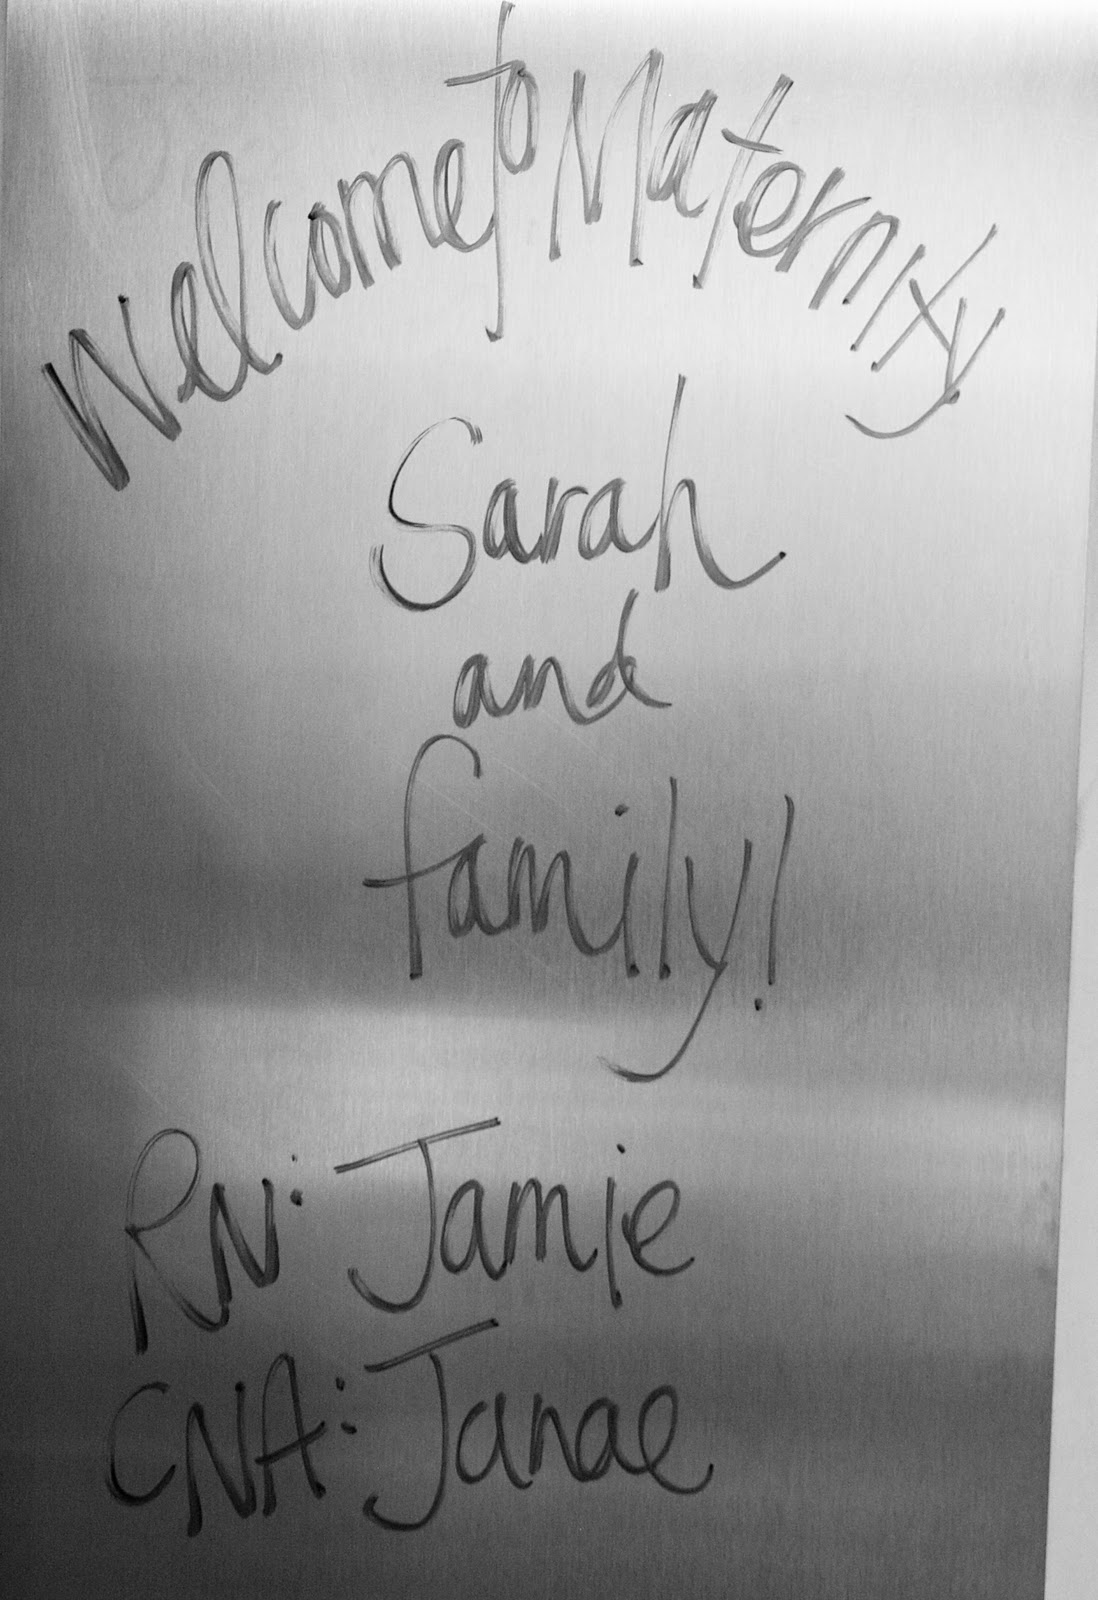 Welcome to Maternity
Sarah
and
family!
RN: Jamie
CNA: Janae